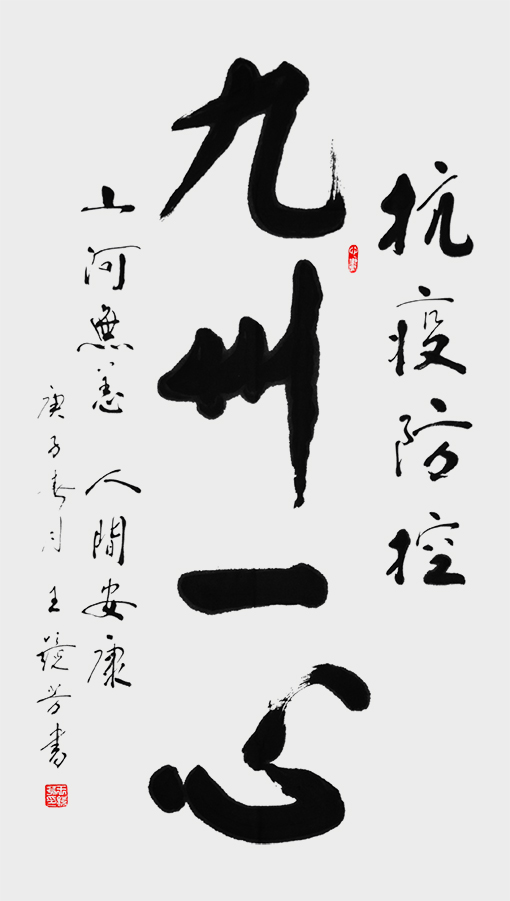 抗疫防控
九州一心
山河無恙 人間安康
庚子春月 王競芳書